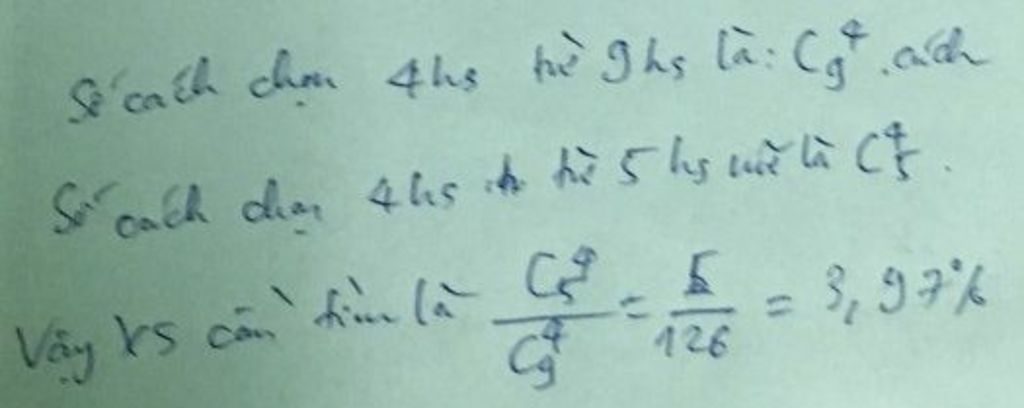 Số cách chọn 4hs từ 9hs là: C₉⁴ cách
Số cách chọn 4hs từ 5 hs nữ là C₅⁴.
Vậy XS cần tìm là C₅⁴/C₉⁴ = 5/126 = 3,97%